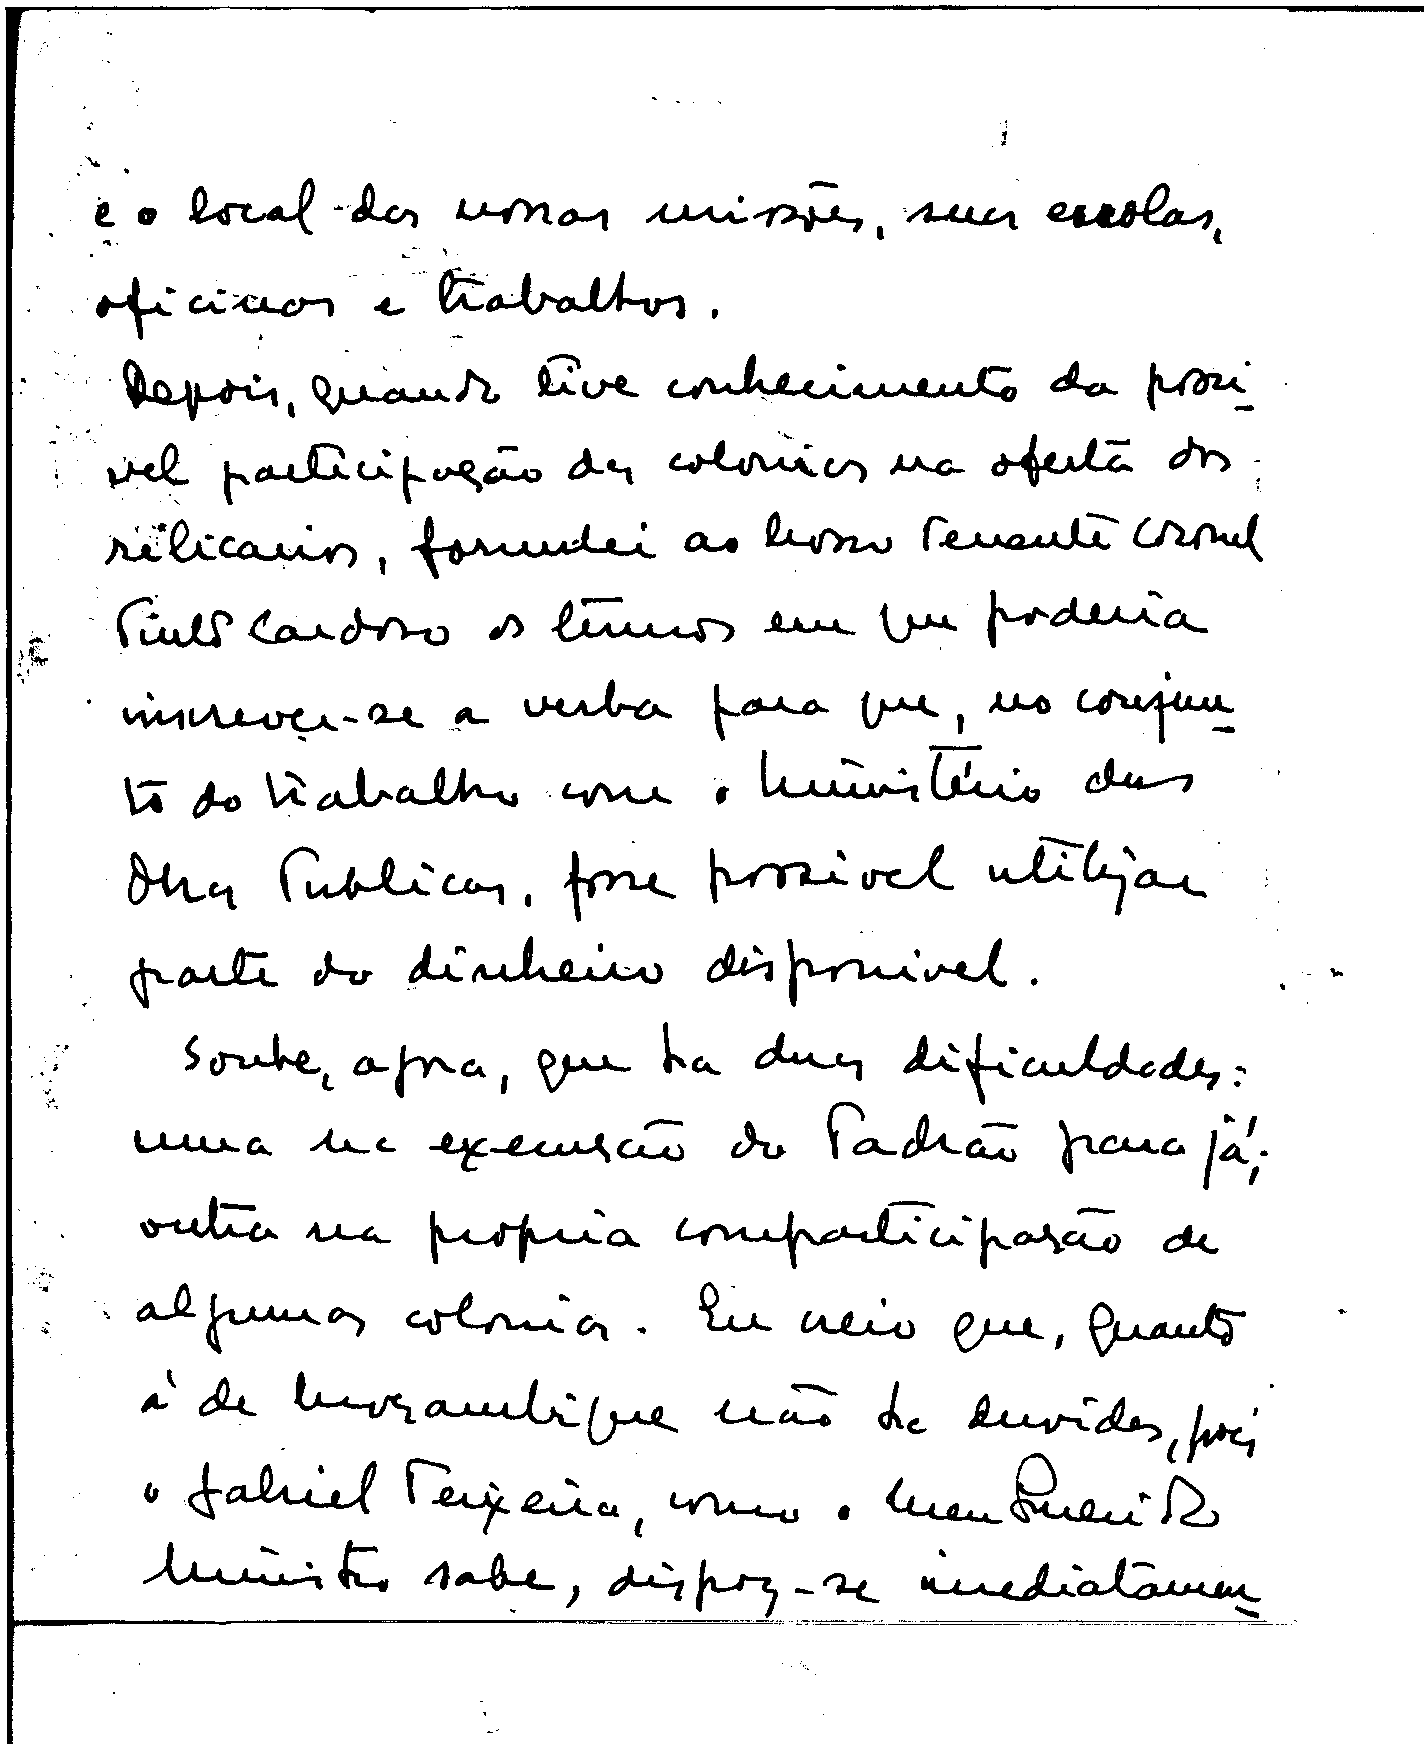 e o local das nossas missões, suas escolas,
oficinas e trabalhos.
Depois, quando tive conhecimento da possi-
vel participação das colonias na oferta dos
relicarios, formulei ao nosso Tenente Coronel
Pinto Cardoso os termos em que poderia
inscrever-se a verba para que, no conjun-
to do trabalho com o Ministério das
Obras Publicas, fosse possivel utilizar
parte do dinheiro disponivel.
Soube, agora, que ha duas dificuldades:
uma na execução do Padrão para já;
outra na propria comparticipação de
algumas colonias. Eu creio que, quanto
á de Moçambique não ha duvidas, pois
o Gabriel Teixeira, como o meu Querido
Ministro sabe, dispoz-se imediatamen-